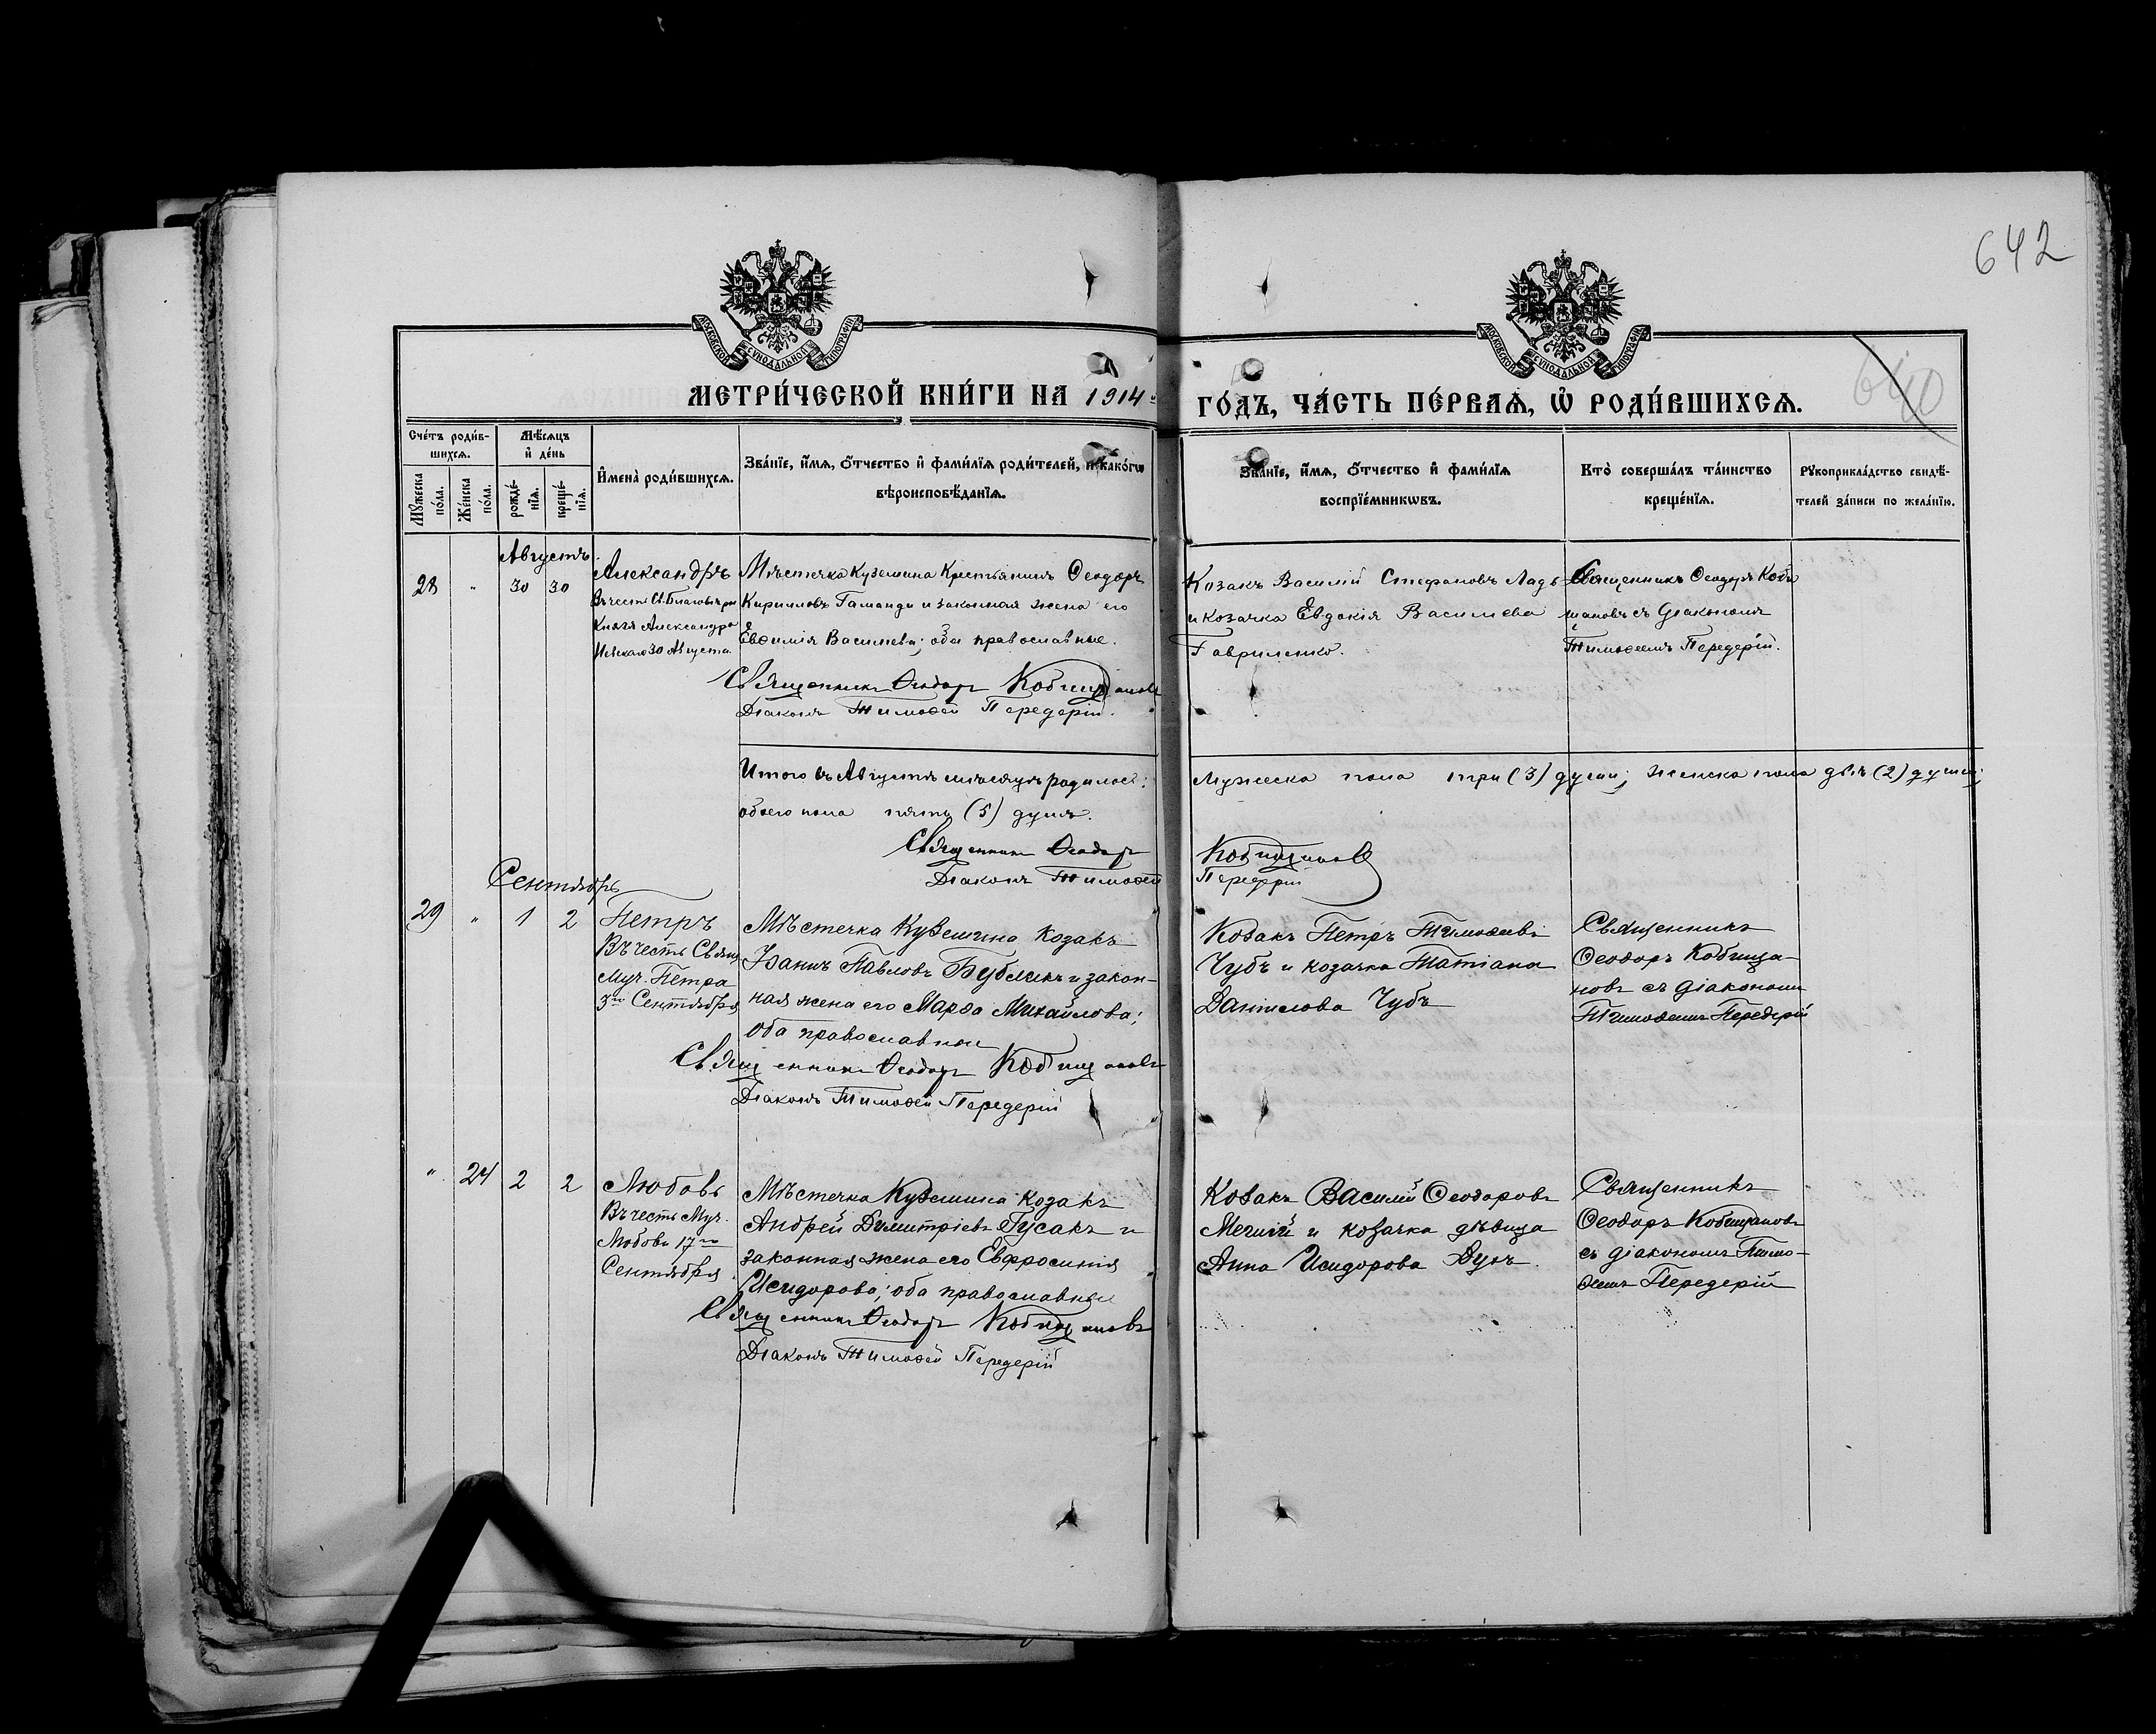 642
640
МОСКОВСКОЙ СѴНОДАЛЬНОЙ ТИПОГРАФІИ
МОСКОВСКОЙ СѴНОДАЛЬНОЙ ТИПОГРАФІИ
МЕТРИ́ЧЕСКОЙ КНИ́ГИ НА 1914 ГО́ДЪ, ЧА́СТЬ ПЕ́РВАѦ, Ѡ҆ РОДИ́ВШИХСѦ.
Сче́тъ роди́в-
шихсѧ.
Мꙋ́жеска по́ла.
Же́нска по́ла.
Мѣ́сѧцъ
и҆ де́нь
рожде́-
нїѧ.
креще́-
нїѧ.
И҆мена̀ роди́вшихсѧ.
Зва́нїе, и҆́мѧ, ѻ҆́тчество и҆ фами́лїѧ роди́телей, и҆ како́гѡ
вѣроисповѣ́данїѧ.
Зва́нїе, и҆́мѧ, ѻ҆́тчество и҆ фами́лїѧ
воспрїе́мникѡвъ.
Кто̀ соверша́лъ та́инство
креще́нїѧ.
Рꙋкоприкла́дство свидѣ́-
телей за́писи по жела́нїю.
Августъ
28 " 30 30
Александръ
Въ честь Св. Благовѣрн
Князя Александра
Невскаго 30 Августа
Мѣстечка Куземина Крестьянинъ Ѳеодоръ
Кирилловъ Гаманда и законная жена его
Евѳимія Васильева; оба православные.
Священникъ Ѳеодоръ Кобищановъ
Діаконъ Тимоѳей Передерій.
Козакъ Василій Стефановъ Ладъ
и козачка Евдокія Васильева
Гавриленко.
Священникъ Ѳеодоръ Коби
щановъ съ діакономъ
Тимоѳеемъ Передерій.
Итого въ Августѣ мѣсяцѣ родилось: Мужеска пола три (3) души; женска пола двѣ (2) души;
обоего пола пять (5) душъ.
Священникъ Ѳеодоръ Кобищановъ
Діаконъ Тимоѳей Передерій
Сентябрь
29 " 1 2
Петръ
Въ честь Свящ
муч. Петра
3го Сентября
Мѣстечка Куземина козакъ
Іванъ Павловъ Бубликъ и закон-
ная жена его Марѳа Михайлова;
оба православные
Священникъ Ѳеодоръ Кобищановъ
Діаконъ Тимоѳей Передерій
Козакъ Петръ Тимоѳеевъ
Чубъ и козачка Татіана
Даніилова Чубъ
Священникъ
Ѳеодоръ Кобища-
новъ съ діакономъ
Тимоѳеемъ Передерій
" 24 2 2
Любовь
Въ честь Муч.
Любови 17го
Сентября
Мѣстечка Куземина козакъ
Андрей Димитріевъ Гусакъ и
законная жена его Евфросинія
Исидорова; оба православные
Священникъ Ѳеодоръ Кобищановъ
Діаконъ Тимоѳей Передерій
Козакъ Василій Ѳеодоровъ
и козачка дѣвица
Анна Исидорова
Священникъ
Ѳеодоръ Кобищановъ
съ діакономъ Тимо-
ѳеемъ Передерій